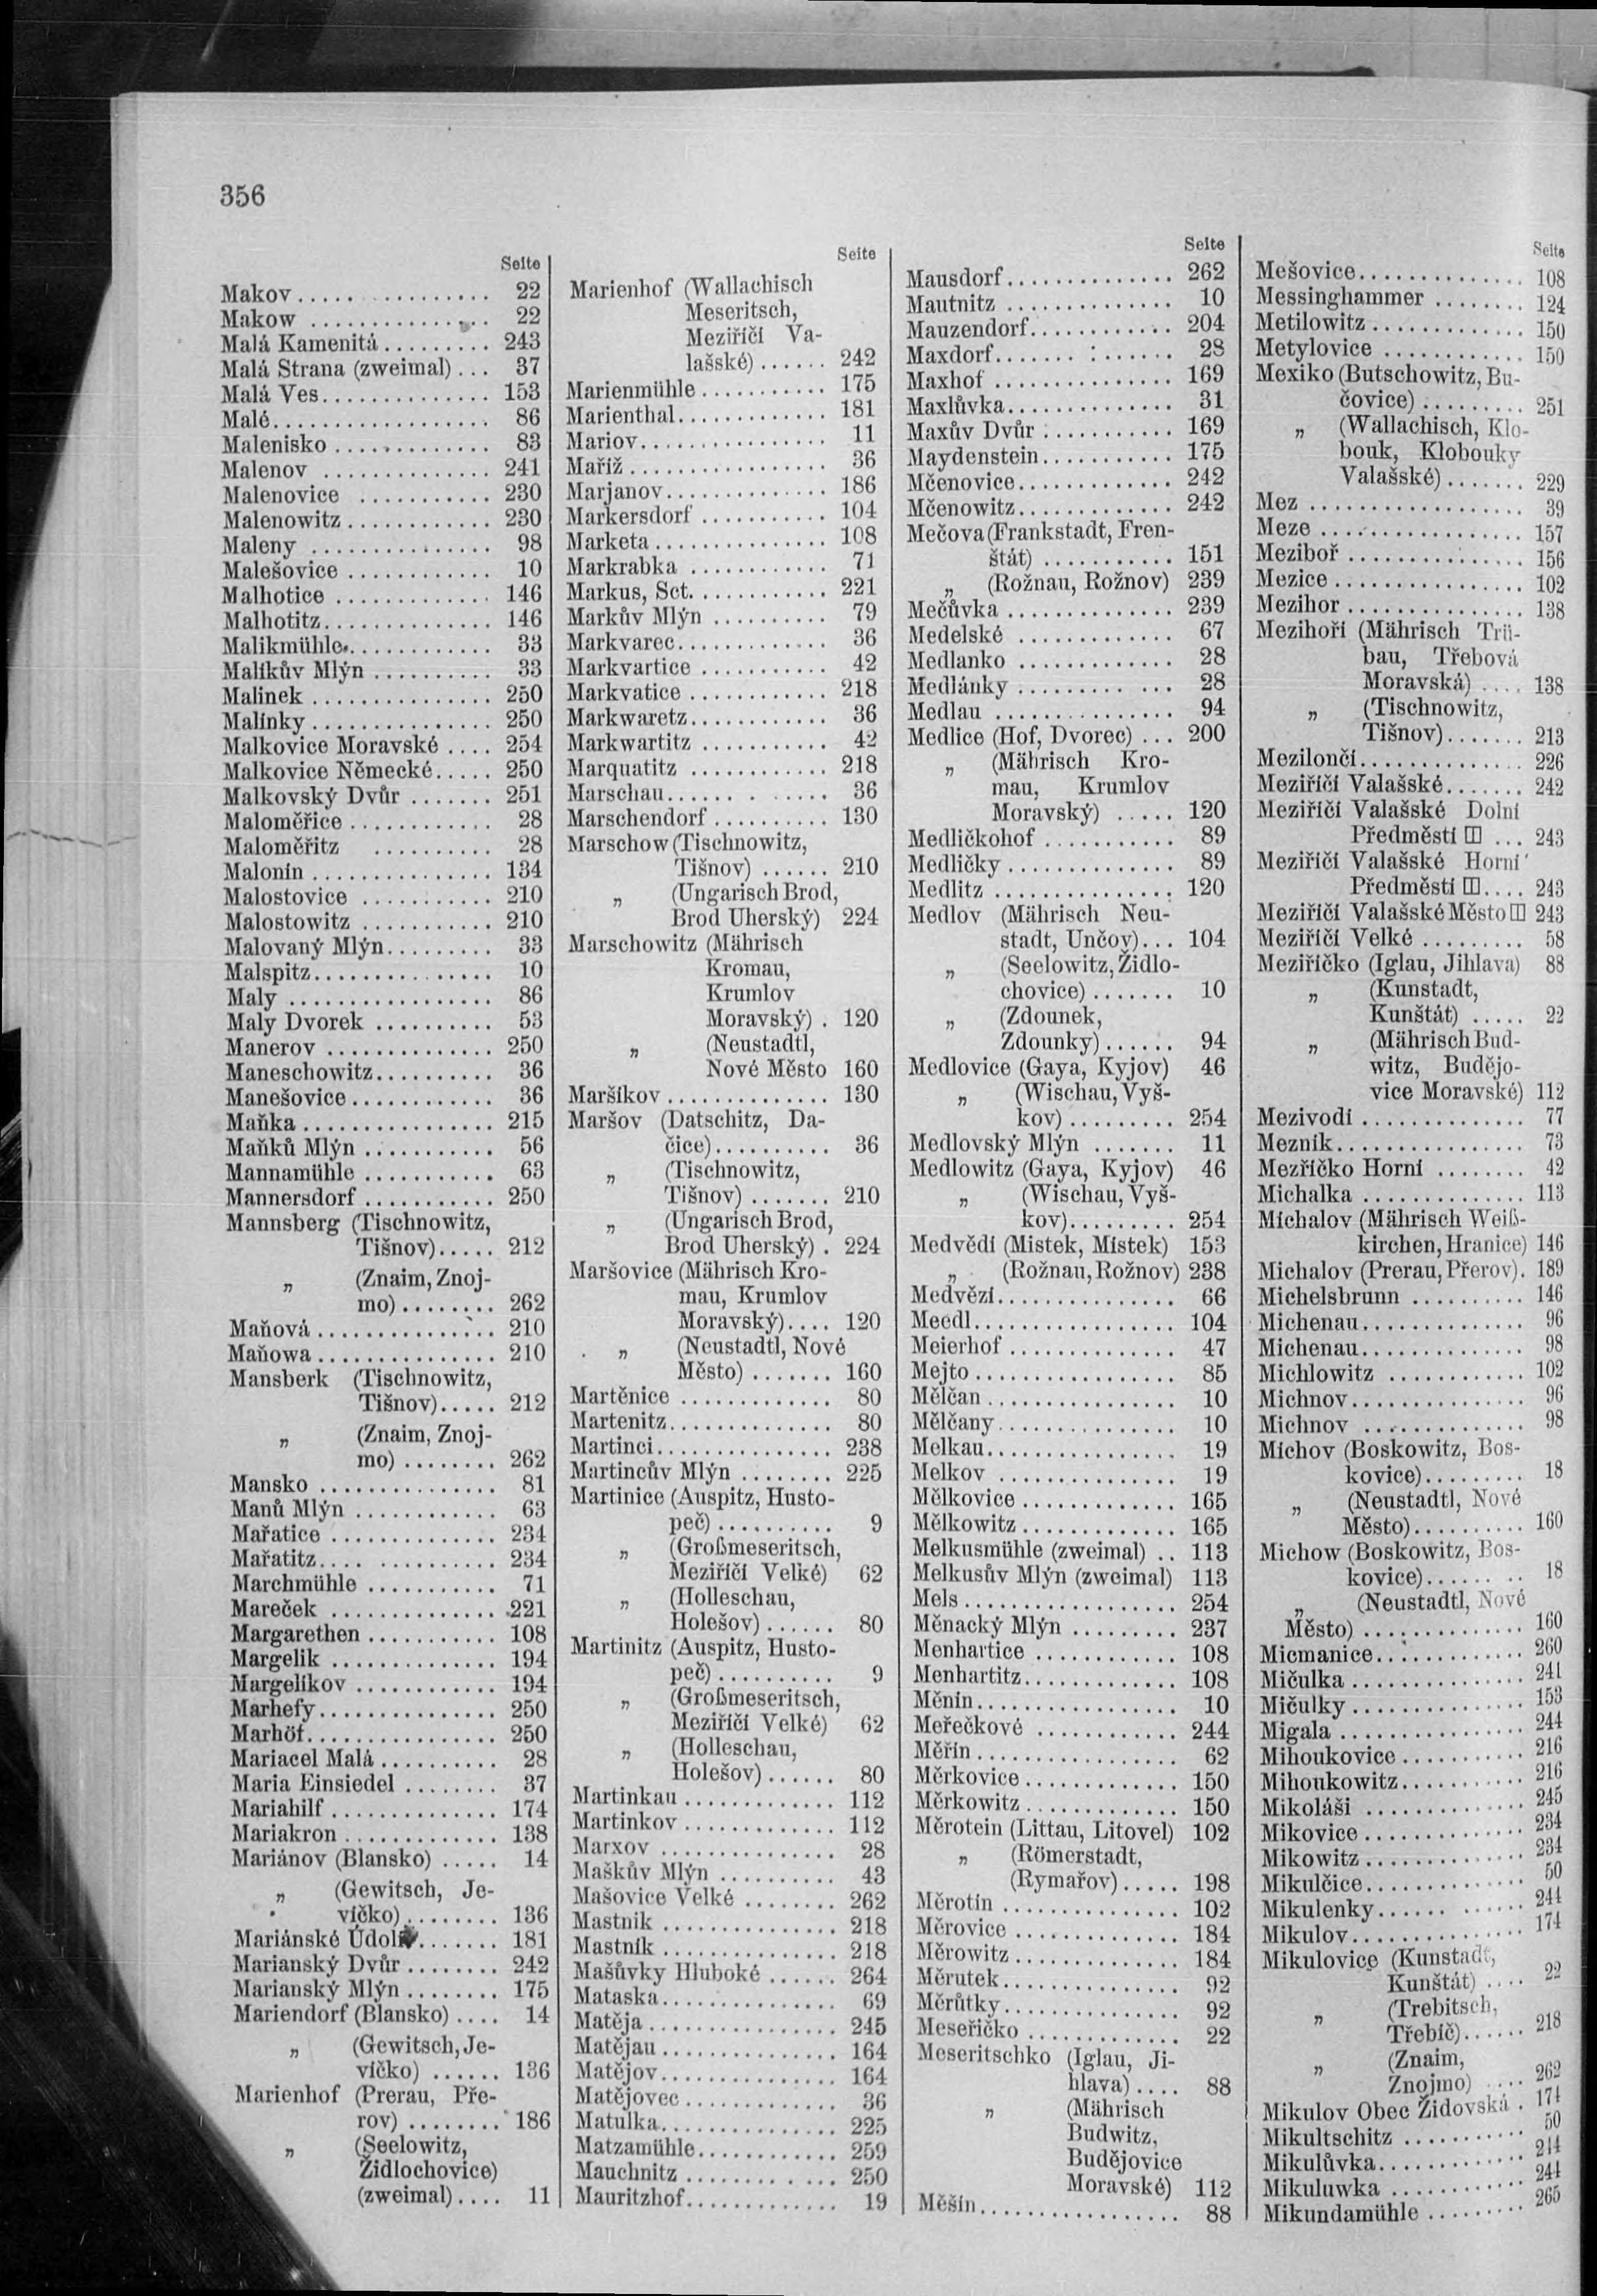 356
Seite
Makov ................ 22
Makow ................ 22
Malá Kamenitá ......... 243
Malá Strana (zweimal) ... 37
Malá Ves .............. 153
Malé .................. 86
Malenisko ............. 83
Malenov ............... 241
Malenovice ............ 230
Malenowitz ............ 230
Maleny ................ 98
Malešovice ............ 10
Malhotice ............. 146
Malhotitz ............. 146
Malikmühle ............ 33
Malíkův Mlýn .......... 33
Malinek ............... 250
Malínky ............... 250
Malkovice Moravské .... 254
Malkovice Německé ..... 250
Malkovský Dvůr ....... 251
Maloměřice ............ 28
Maloměřitz .......... 28
Malonín ............... 134
Malostovice ........... 210
Malostowitz ........... 210
Malovaný Mlýn ......... 33
Malspitz .............. 10
Maly .................. 86
Maly Dvorek .......... 53
Manerov .............. 250
Maneschowitz .......... 36
Manešovice ............ 36
Maňka ................ 215
Maňků Mlýn ........... 56
Mannamühle ........... 63
Mannersdorf ........... 250
Mannsberg (Tischnowitz,
Tišnov) ..... 212
„ (Znaim, Znoj-
mo) ........ 262
Maňová ............... 210
Maňowa ............... 210
Mansberk (Tischnowitz,
Tišnov) ..... 212
„ (Znaim, Znoj-
mo) ........ 262
Mansko ............... 81
Manů Mlýn ............ 63
Mařatice .............. 234
Mařatitz .............. 234
Marchmühle ........... 71
Mareček .............. 221
Margarethen ........... 108
Margelik .............. 194
Margelíkov ............ 194
Marhefy ............... 250
Marhöf ................ 250
Mariacel Malá .......... 28
Maria Einsiedel ........ 37
Mariahilf .............. 174
Mariakron ............. 138
Mariánov (Blansko) ..... 14
„ (Gewitsch, Je-
víčko) ........ 136
Mariánské Údolí ....... 181
Marianský Dvůr ........ 242
Marianský Mlýn ........ 175
Mariendorf (Blansko) .... 14
„ (Gewitsch, Je-
víčko) ...... 136
Marienhof (Prerau, Pře-
rov) ........ 186
„ (Seelowitz,
Židlochovice)
(zweimal) .... 11
Seite
Marienhof (Wallachisch
Meseritsch,
Meziříčí Va-
lašské) ...... 242
Marienmühle ........... 175
Marienthal ............. 181
Mariov ................ 11
Maříž ................. 36
Marjanov .............. 186
Markersdorf ........... 104
Marketa ............... 108
Markrabka ............ 71
Markus, Sct. ........... 221
Markův Mlýn .......... 79
Markvarec ............. 36
Markvartice ........... 42
Markvatice ............ 218
Markwaretz ............ 36
Markwartitz ........... 42
Marquatitz ............ 218
Marschau .............. 36
Marschendorf .......... 130
Marschow (Tischnowitz,
Tišnov) ...... 210
„ (Ungarisch Brod,
Brod Uherský) 224
Marschowitz (Mährisch
Kromau,
Krumlov
Moravský) . 120
„ (Neustadtl,
Nové Město 160
Maršíkov .............. 130
Maršov (Datschitz, Da-
čice) .......... 36
„ (Tischnowitz,
Tišnov) ....... 210
„ (Ungarisch Brod,
Brod Uherský) . 224
Maršovice (Mährisch Kro-
mau, Krumlov
Moravský) .... 120
„ (Neustadtl, Nové
Město) ....... 160
Martěnice ............. 80
Martenitz .............. 80
Martinci ............... 238
Martincův Mlýn ........ 225
Martinice (Auspitz, Husto-
peč) .......... 9
„ (Großmeseritsch,
Meziříčí Velké) 62
„ (Holleschau,
Holešov) ...... 80
Martinitz (Auspitz, Husto-
peč) .......... 9
„ (Großmeseritsch,
Meziříčí Velké) 62
„ (Holleschau,
Holešov) ...... 80
Martinkau ............. 112
Martinkov ............. 112
Marxov ............... 28
Maškův Mlýn .......... 43
Mašovice Velké ........ 262
Mastnik ............... 218
Mastník ............... 218
Mašůvky Hluboké ...... 264
Mataska ............... 69
Matěja ................ 245
Matějau ............... 164
Matějov ............... 164
Matějovec ............. 36
Matulka ............... 225
Matzamühle ............ 259
Mauchnitz ............. 250
Mauritzhof ............. 19
Seite
Mausdorf .............. 262
Mautnitz .............. 10
Mauzendorf ............ 204
Maxdorf ............... 28
Maxhof ............... 169
Maxlůvka .............. 31
Maxův Dvůr ........... 169
Maydenstein ........... 175
Mčenovice ............. 242
Mčenowitz ............. 242
Mečova (Frankstadt, Fren-
štát) ........... 151
„ (Rožnau, Rožnov) 239
Mečůvka .............. 239
Medelské ............. 67
Medlanko ............. 28
Medlánky ............. 28
Medlau ............... 94
Medlice (Hof, Dvorec) ... 200
„ (Mährisch Kro-
mau, Krumlov
Moravský) ..... 120
Medličkohof ........... 89
Medličky .............. 89
Medlitz ............... 120
Medlov (Mährisch Neu-
stadt, Unčov) ... 104
„ (Seelowitz, Židlo-
chovice) ....... 10
„ (Zdounek,
Zdounky) ...... 94
Medlovice (Gaya, Kyjov) 46
„ (Wischau, Vyš-
kov) ......... 254
Medlovský Mlýn ....... 11
Medlowitz (Gaya, Kyjov) 46
„ (Wischau, Vyš-
kov) ......... 254
Medvědí (Mistek, Místek) 153
„ (Rožnau, Rožnov) 238
Medvězí ............... 66
Meedl ................. 104
Meierhof .............. 47
Mejto ................. 85
Mělčan ................ 10
Mělčany ............... 10
Melkau ................ 19
Melkov ............... 19
Mělkovice ............. 165
Mělkowitz ............. 165
Melkusmühle (zweimal) .. 113
Melkusův Mlýn (zweimal) 113
Mels .................. 254
Měnacký Mlýn ......... 237
Menhartice ............ 108
Menhartitz ............. 108
Měnín ................. 10
Meřečkové ............ 244
Měřín ................. 62
Měrkovice ............. 150
Měrkowitz ............. 150
Měrotein (Littau, Litovel) 102
„ (Römerstadt,
(Rymařov) ..... 198
Měrotín ............... 102
Měrovice .............. 184
Měrowitz .............. 184
Měrutek ............... 92
Měrůtky ............... 92
Meseřičko ............. 22
Meseritschko (Iglau, Ji-
hlava) .... 88
„ (Mährisch
Budwitz,
Budějovice
Moravské) 112
Měšín ................. 88
Seite
Mešovice .............. 108
Messinghammer ........ 124
Metilowitz ............. 150
Metylovice ............ 150
Mexiko (Butschowitz, Bu-
čovice) ......... 251
„ (Wallachisch, Klo-
bouk, Klobouky
Valašské) ....... 229
Mez .................. 39
Meze ................. 157
Meziboř ............... 156
Mezice ................ 102
Mezihor ............... 138
Mezihoří (Mährisch Trü-
bau, Třebová
Moravská) .... 138
„ (Tischnowitz,
Tišnov) ....... 213
Mezilončí .............. 226
Meziříčí Valašské ....... 242
Meziříčí Valašské Dolní
Předměstí ... 243
Meziříčí Valašské Horní
Předměstí .... 243
Meziříčí Valašské Město 243
Meziříčí Velké ......... 58
Meziříčko (Iglau, Jihlava) 88
„ (Kunstadt,
Kunštát) ..... 22
„ (Mährisch Bud-
witz, Budějo-
vice Moravské) 112
Mezivodí .............. 77
Mezník ................ 73
Mezříčko Horní ........ 42
Michalka .............. 113
Michalov (Mährisch Weiß-
kirchen, Hranice) 146
Michalov (Prerau, Přerov) . 189
Michelsbrunn .......... 146
Michenau .............. 96
Michenau .............. 98
Michlowitz ............ 102
Michnov ............... 96
Michnov .............. 98
Míchov (Boskowitz, Bos-
kovice) ......... 18
„ (Neustadtl, Nové
Město) .......... 160
Michow (Boskowitz, Bos-
kovice) ......... 18
„ (Neustadtl, Nové
Město) .............. 160
Micmanice ............. 260
Mičulka ............... 241
Mičulky ............... 153
Migala ................ 244
Mihoukovice ........... 216
Mihoukowitz ........... 216
Mikoláši .............. 245
Mikovice .............. 234
Mikowitz .............. 234
Mikulčice .............. 50
Mikulenky ............. 244
Mikulov ............... 174
Mikulovice (Kunstadt,
Kunštát) .... 22
„ (Trebitsch,
Třebíč) ...... 218
„ (Znaim,
Znojmo) .... 262
Mikulov Obec Židovská . 174
Mikultschitz ........... 50
Mikulůvka ............. 244
Mikuluwka ............ 244
Mikundamühle ......... 265